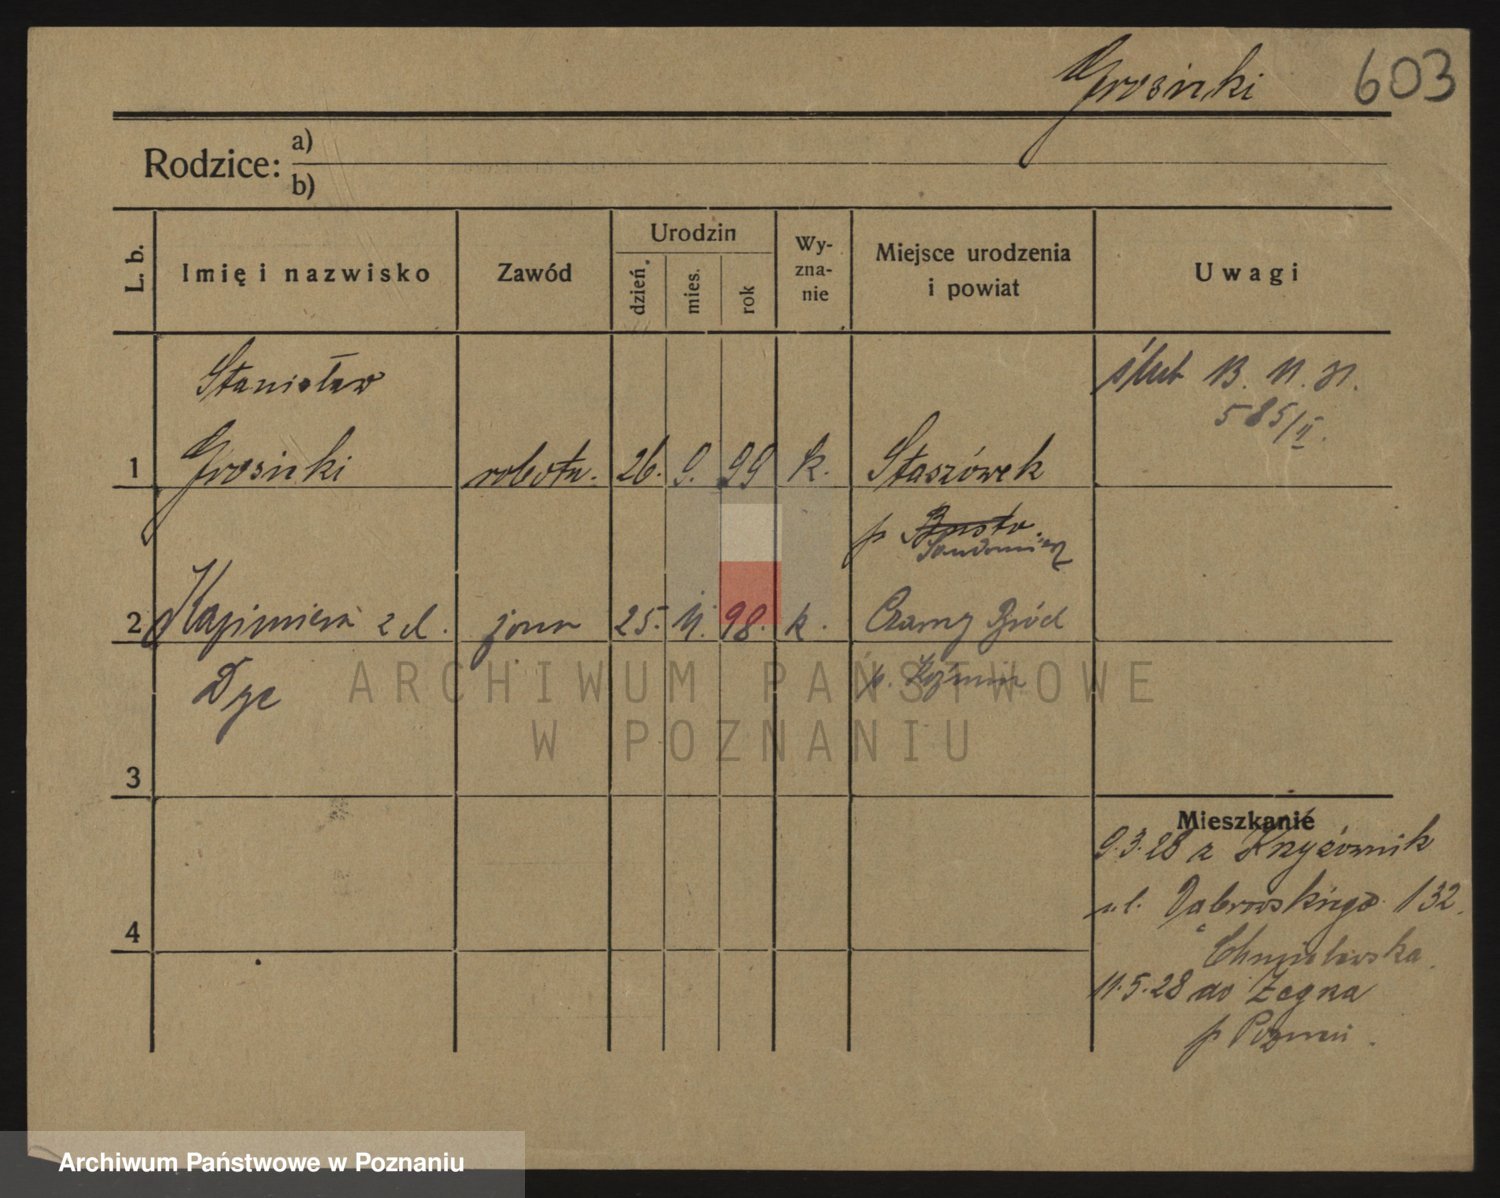 Grosinki 603
Rodzice: a)
b)
L. b.
Imię i nazwisko
Zawód
Urodzin
dzień
mies.
rok
Wy-
zna-
nie
Miejsce urodzenia
i powiat
Uwagi
Stanisław
ślub 13. 11. 31.
585/II.
1 Grosinki robotn. 26. 9. 99 k. Staszówek
p Sandomierz
2 Kazimiera z d. żona 25. 11. 98. k. Czarny Bród
Dyc
ARCHIWUM PAŃSTWOWE
W POZNANIU
3
Mieszkanie
9.3.28 z Krzyżownik
ul. Dąbrowskiego 132.
4
Chmielewska
11.5.28 do
p Poznań.
Archiwum Państwowe w Poznaniu